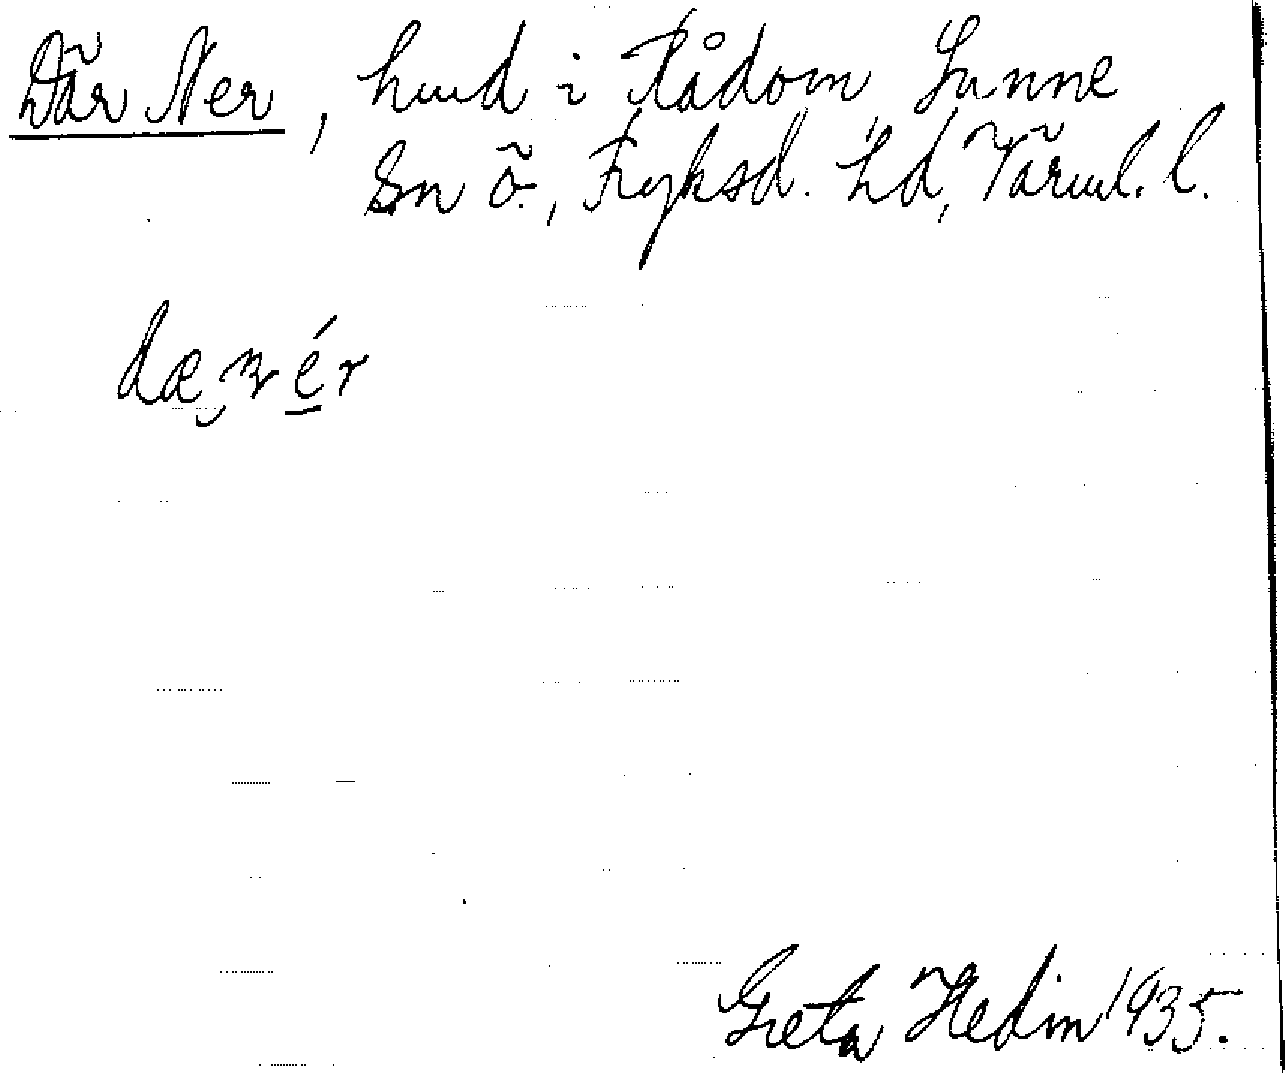 Där Ner, hmd i Rådom Sunne
Sn ö., Fryksd. hd, Värml. l.
dæ ér
Greta Hedin 1935.